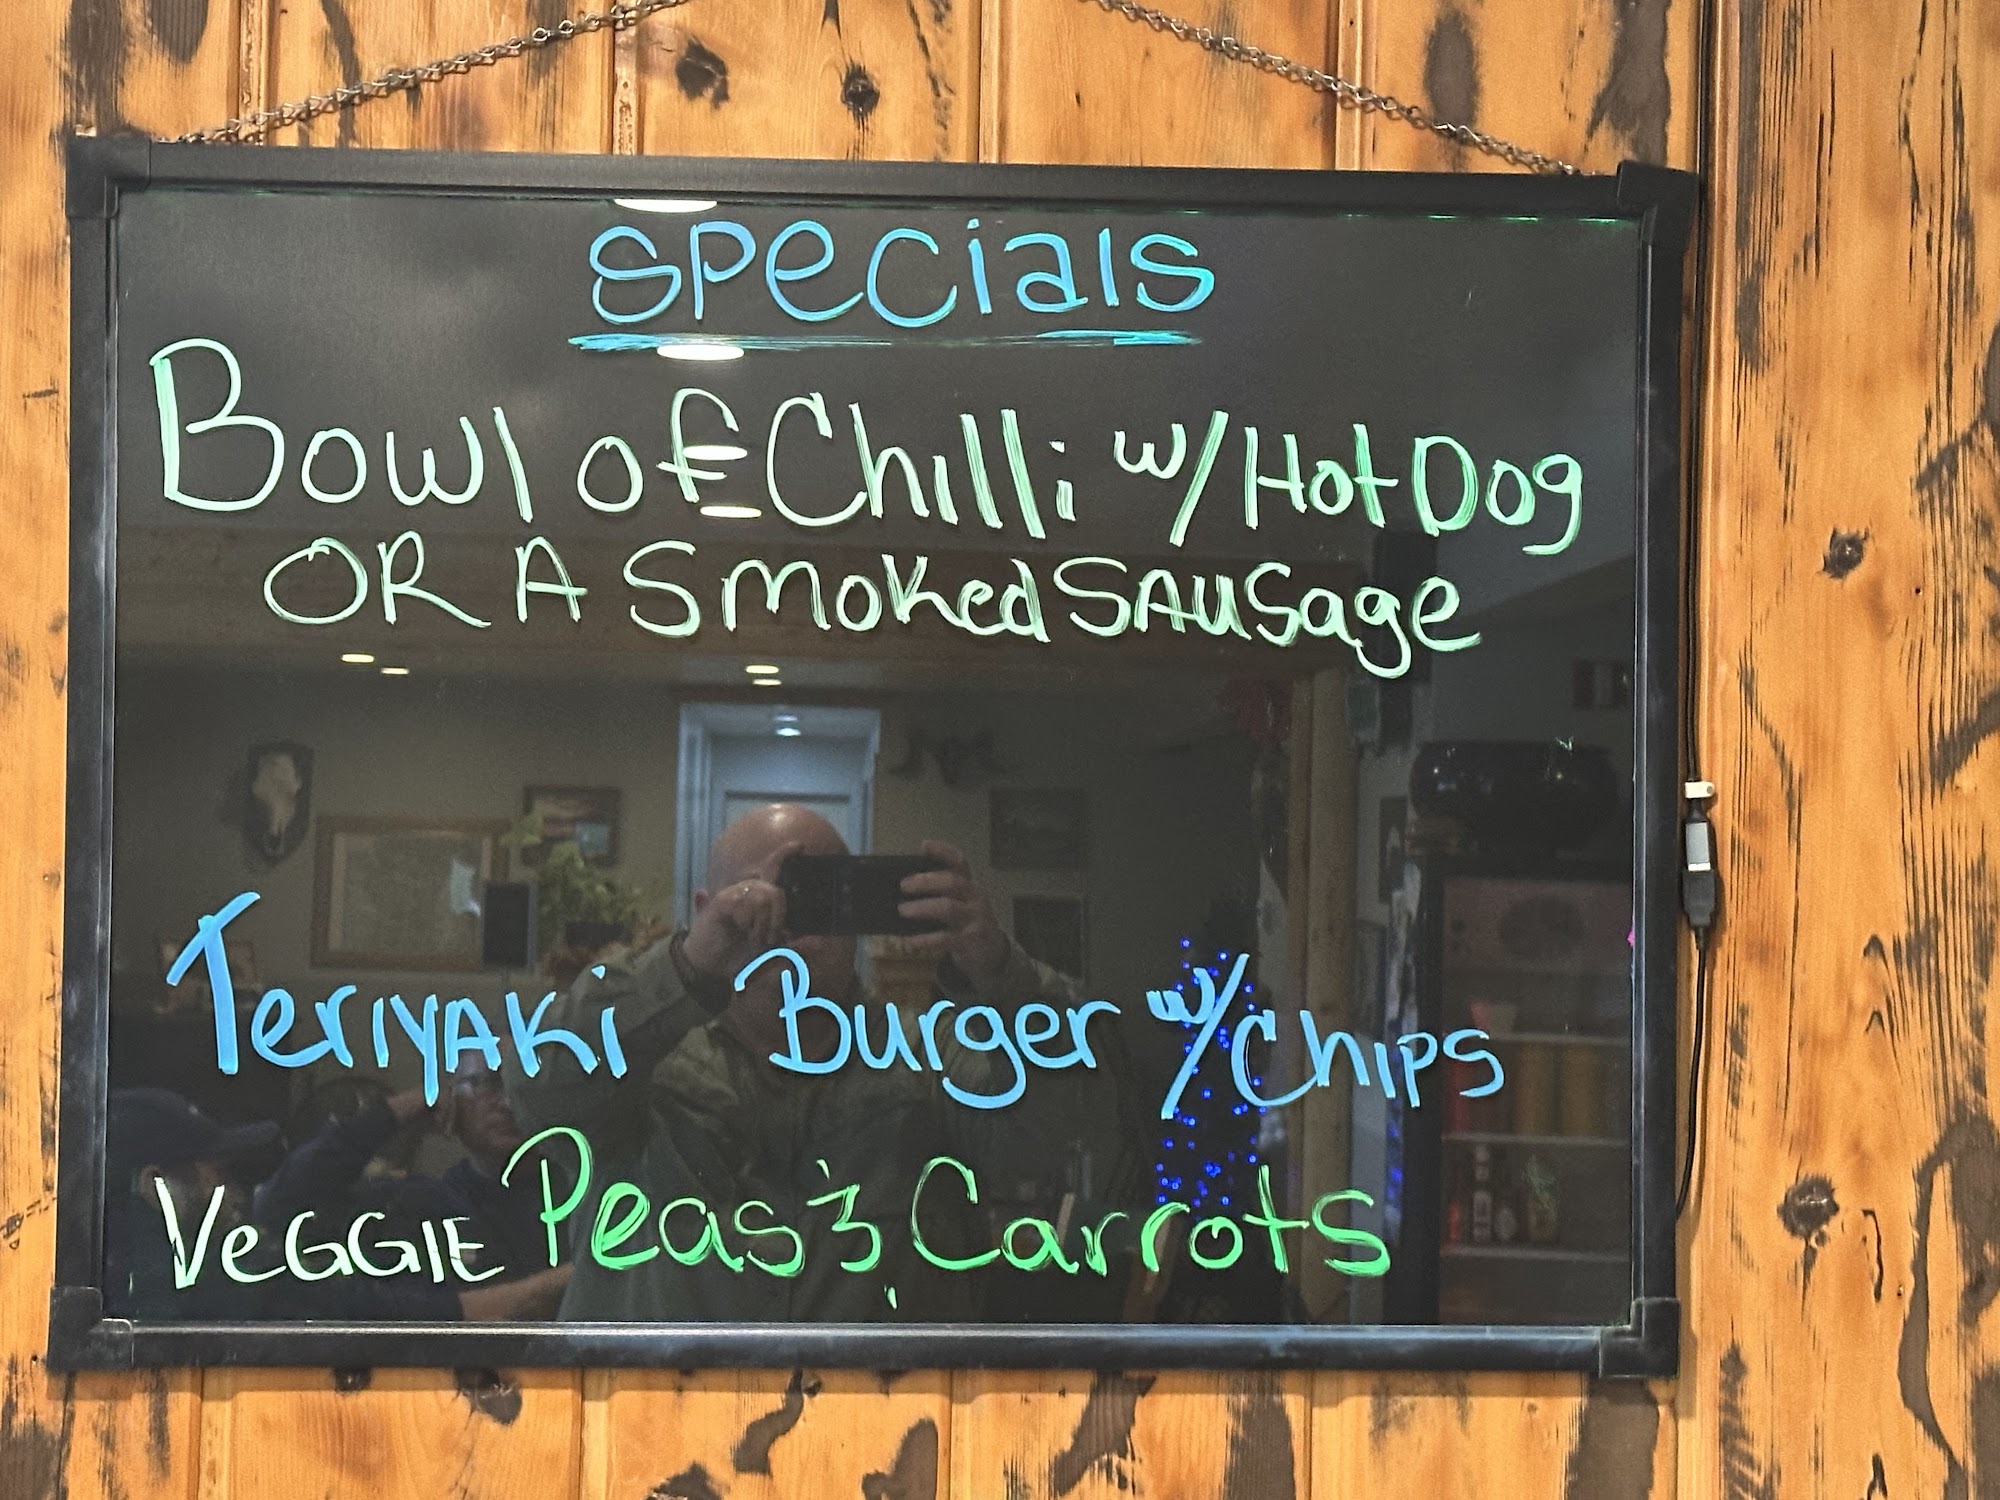 Specials
Bowl of Chilli w/Hot Dog
OR A Smoked SAUSage
TeriYAKi Burger w/Chips
VeGGIE Peas & Carrots